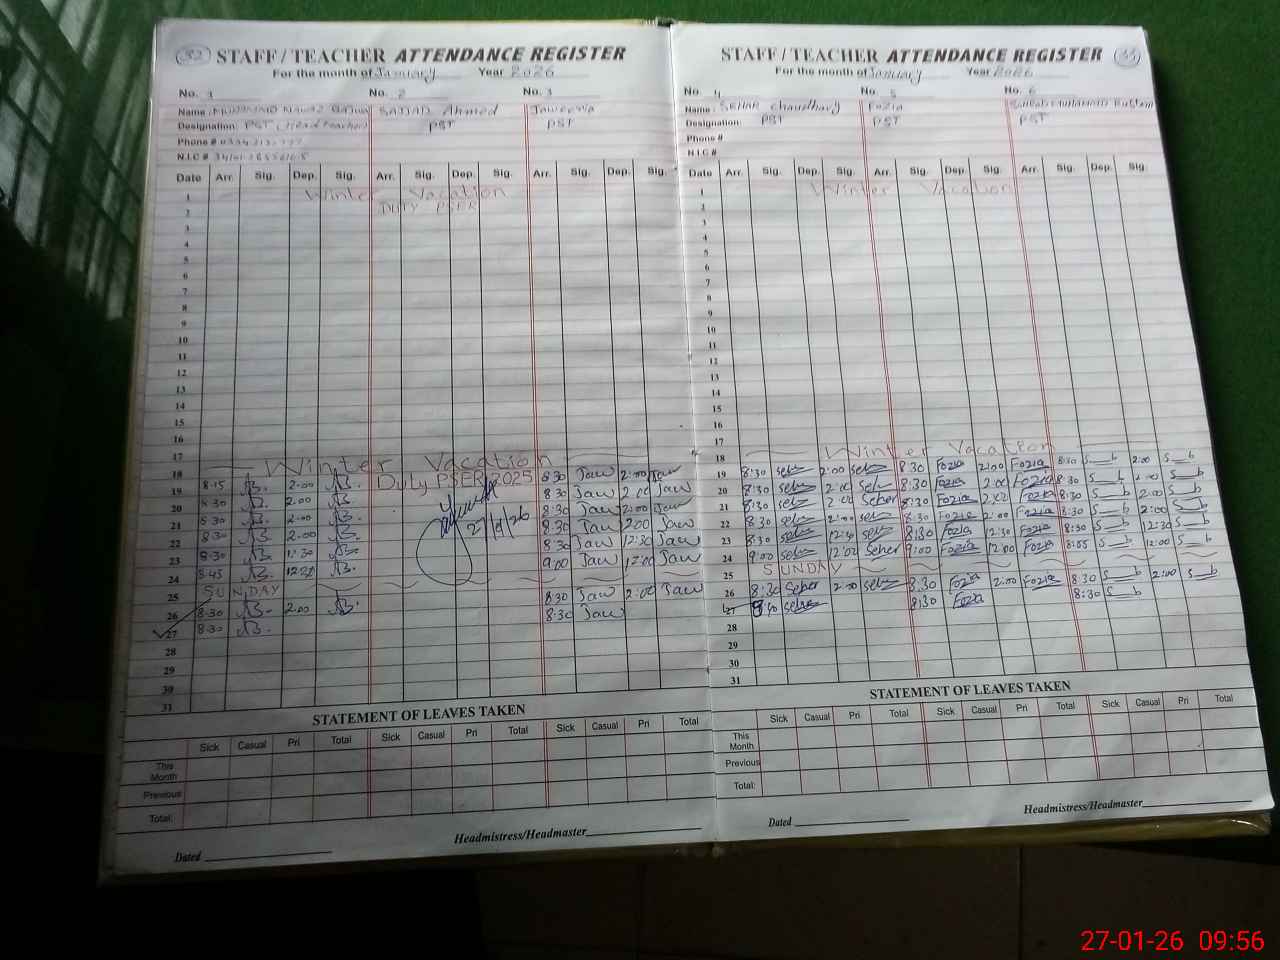 32 STAFF / TEACHER ATTENDANCE REGISTER
For the month of January Year 2026
No. 1 No. 2 No. 3
Name: SAJJAD Ahmed Jaweeria
Designation: PST (Head teacher) PST PST
Phone #
N.I.C #
Date Arr. Sig. Dep. Sig. Arr. Sig. Dep. Sig. Arr. Sig. Dep. Sig.
1 Winter Vacation
2 DUTY PSER
3
4
5
6
7
8
9
10
11
12
13
14
15
16
17
18 Winter Vacation
19 8-15 2-00 Duty PSER 2025 8:30 Jaw 2:00 Jaw
20 8-30 2.00 8:30 Jaw 2:00 Jaw
21 8-30 2-00 27/1/26 8:30 Jaw 2:00 Jaw
22 8-30 2-00 8:30 Jaw 2:00 Jaw
23 8-30 8:30 Jaw 12:30 Jaw
24 9:00 Jaw 12:00 Jaw
25 SUNDAY
26 8-30 2-00 8:30 Jaw 2:00 Jaw
27 8-30 8:30 Jaw
28
29
30
31
STATEMENT OF LEAVES TAKEN
Sick Casual Pri Total Sick Casual Pri Total Sick Casual Pri Total
This Month
Previous
Total:
Headmistress/Headmaster
Dated
33 STAFF / TEACHER ATTENDANCE REGISTER
For the month of January Year 2026
No. 4 No. 5 No. 6
Name: SEHAR Chaudhary Fozia
Designation: PST PST PST
Phone #
N.I.C #
Date Arr. Sig. Dep. Sig. Arr. Sig. Dep. Sig. Arr. Sig. Dep. Sig.
1 Winter Vacation
2
3
4
5
6
7
8
9
10
11
12
13
14
15
16
17
18 Winter Vacation
19 8:30 2:00 8:30 Fozia 2:00 Fozia 8:30 2:00
20 8:30 2:00 8:30 Fozia 2:00 Fozia 8:30 2:00
21 8:30 2:00 Seher 8:30 Fozia 2:00 Fozia 8:30 2:00
22 8:30 2:00 8:30 Fozia 2:00 Fozia 8:30 2:00
23 8:30 8:30 Fozia 12:30 Fozia 8:30 12:30
24 9:00 12:00 Seher 9:00 Fozia 12:00 Fozia 12:00
25 SUNDAY
26 8:30 Seher 2:00 8:30 Fozia 2:00 Fozia 8:30 2:00
27 8:30 Fozia 8:30
28
29
30
31
STATEMENT OF LEAVES TAKEN
Sick Casual Pri Total Sick Casual Pri Total Sick Casual Pri Total
This Month
Previous
Total:
Headmistress/Headmaster
Dated
27-01-26 09:56